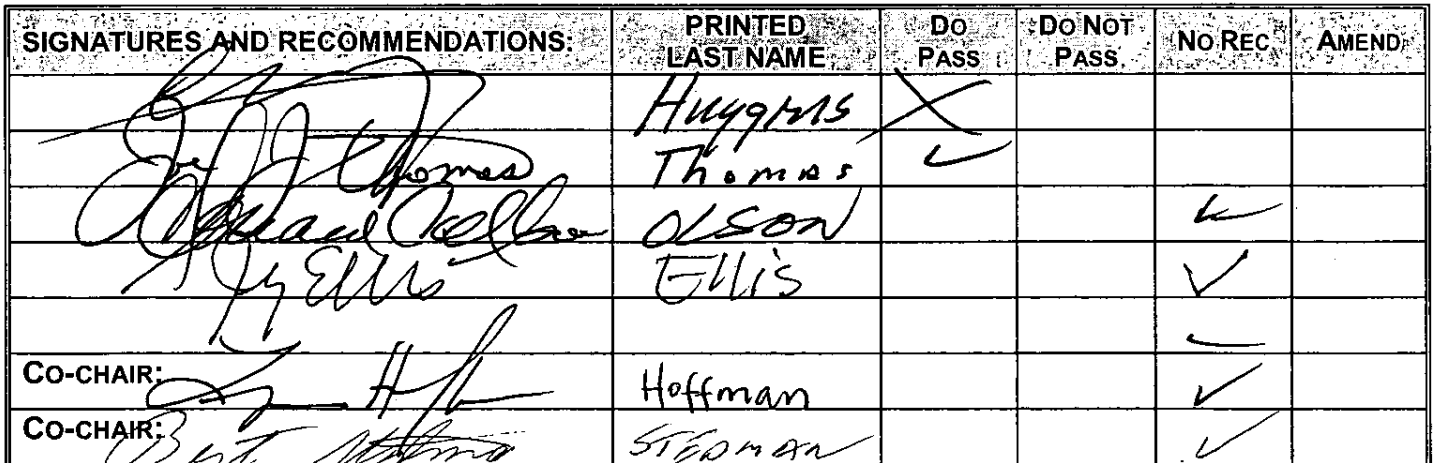 SIGNATURES AND RECOMMENDATIONS: PRINTED LAST NAME DO PASS DO NOT PASS NO REC AMEND
Huygens
Thomas Thomas
OLSON
Ellis Ellis
CO-CHAIR: Hoffman
CO-CHAIR: Bert STEDMAN